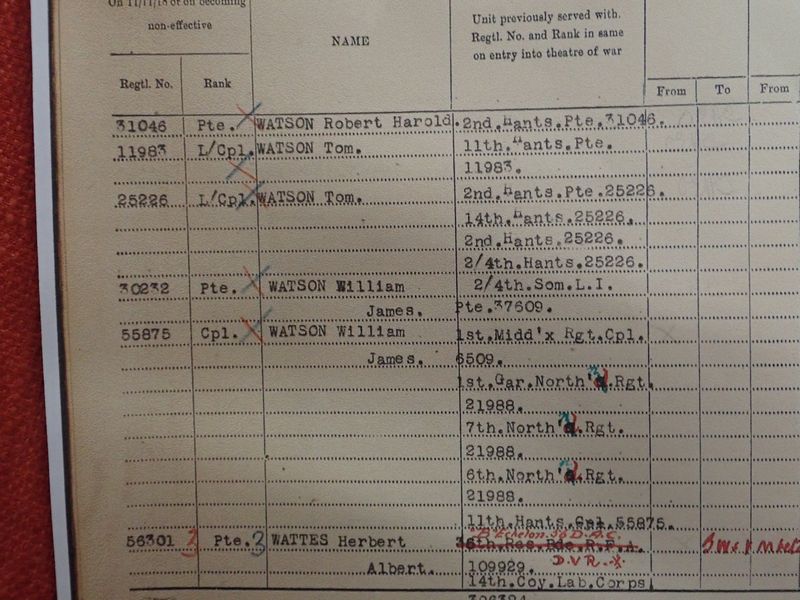 On 11/11/18 or on becoming
non-effective
NAME
Unit previously served with.
Regtl. No. and Rank in same
on entry into theatre of war
Regtl. No. Rank From To From
31046 Pte. WATSON Robert Harold. 2nd.Hants.Pte.31046.
11983 L/Cpl. WATSON Tom. 11th.Hants.Pte.
11983.
25226 L/Cpl. WATSON Tom. 2nd.Hants.Pte.25226.
14th.Hants.25226.
2nd.Hants.25226.
2/4th.Hants.25226.
30232 Pte. WATSON William 2/4th.Som.L.I.
James. Pte.37609.
55875 Cpl. WATSON William 1st.Midd'x Rgt.Cpl.
James. 6509.
1st.Gar.North'd.Rgt.
21988.
7th.North'd.Rgt.
21988.
6th.North'd.Rgt.
21988.
11th.Hants.Cpl.55875.
"B" Echelon. 36 D.A.C.
56301 3 Pte. 3 WATTES Herbert 36th.Res.Bde.R.F.A.
D.V.R.
Albert. 109929.
14th.Coy.Lab.Corps.